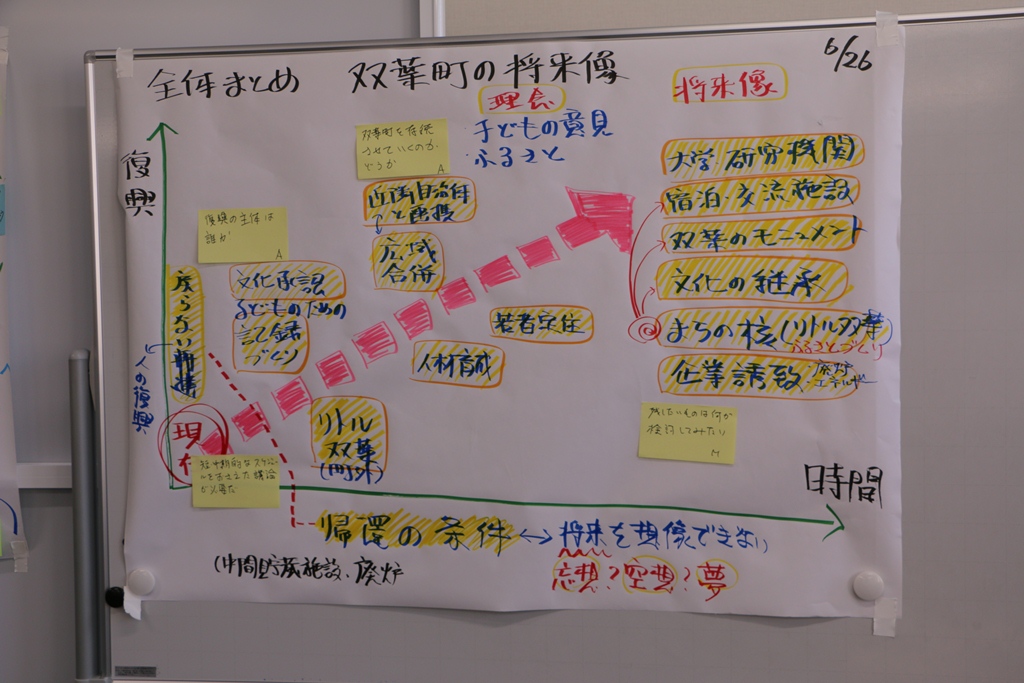 全体まとめ 双葉町の将来像
6/26
理念
子どもの意見
ふるさと
将来像
復興
双葉町を存続
させていくのか
どうか
A
近隣自治体
と連携
広域
合併
復興の主体は
誰か
A
戻らない
人の復興
文化承認
子どものための
記録
づくり
若者定住
人材育成
リトル
双葉
(町外)
現在
大学・研究機関
宿泊・交流施設
双葉のモニュメント
文化の継承
まちの核(リトル双葉)
ふるさとづくり
企業誘致
・廃炉
・エネルギー
残したいものは何か
検討してみたい
M
短中期的なスケジュー
ルをふまえた議論
が必要だ
時間
帰還の条件 ↔ 将来を想像できない
(中間貯蔵施設、廃炉
妄想?空想?夢